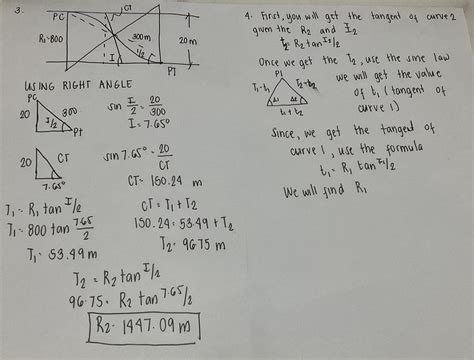 3.
PC
CT
R1=800
300m
20 m
I/2
I
PT
USING RIGHT ANGLE
PC
20
300
I/2
Pt
sin I/2 = 20/300
I = 7.65°
20
CT
7.65°
sin 7.65° = 20/CT
CT = 150.24 m
T1 = R1 tan I/2
T1 = 800 tan 7.65/2
T1 = 53.49 m
CT = T1 + T2
150.24 = 53.49 + T2
T2 = 96.75 m
T2 = R2 tan I/2
96.75 = R2 tan 7.65/2
R2 = 1447.09 m
4. First, you will get the tangent of curve 2
given the R2 and I2
t2 = R2 tan I2/2
Once we get the T2, use the sine law
we will get the value
of t1 (tangent of
curve 1)
PI
T1-t1
T2-t2
Δ1
Δ2
t1 + t2
Since, we get the tangent of
curve 1, use the formula
t1 = R1 tan I1/2
We will find R1